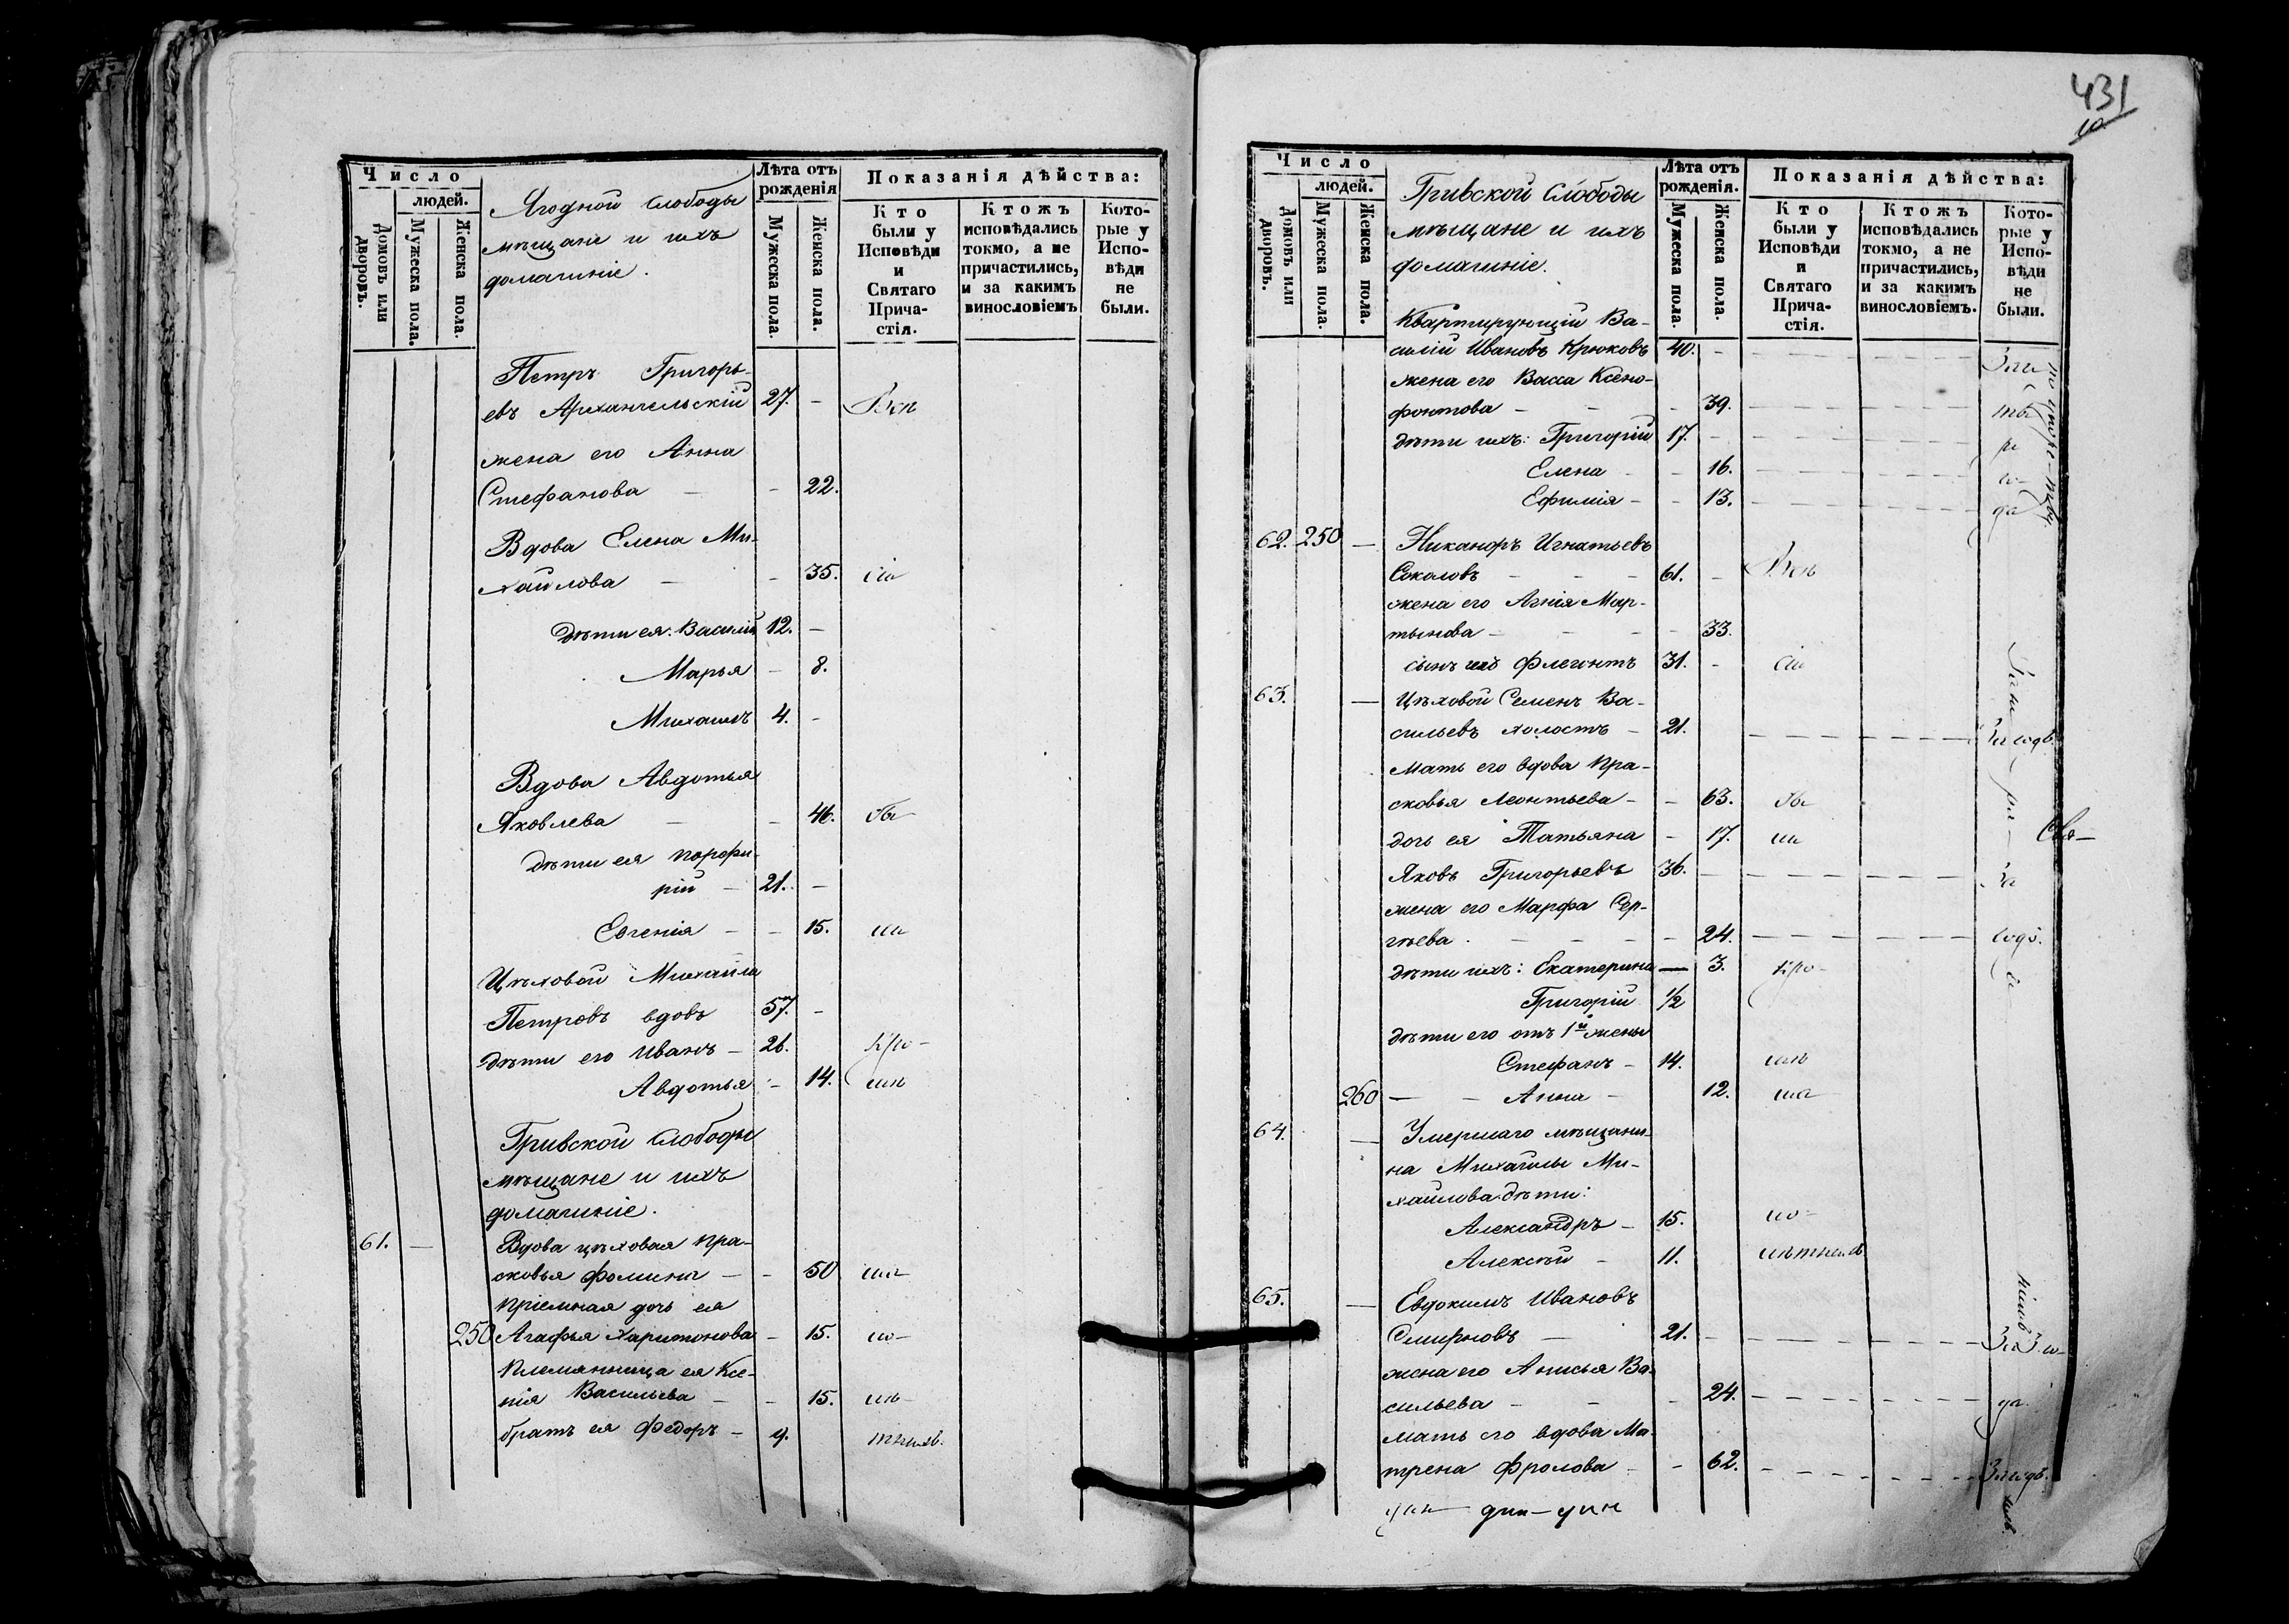 431
Число
людей.
Домовъ или дворовъ.
Мужеска пола.
Женска пола.
Ягодной слободы
мѣщане и ихъ
домашніе.
Лѣта отъ
рожденія
Мужеска пола.
Женска пола.
Показанія дѣйства:
Кто
были у
Исповѣди
и
Святаго
Прича-
стія.
Ктожъ
исповѣдались
токмо, а не
причастились,
и за какимъ
винословіемъ
Кото-
рые у
Испо-
вѣди
не
были.
Петръ Григорь-
евъ Архангельскій 27. -
жена его Анна
Стефанова - - 22.
Вдова Елена Ми-
хайлова - - 35.
дѣти ея: Василій 12. -
Марья - 8.
Михаилъ 4. -
Вдова Авдотья
Яковлева - - 46.
дѣти ея Порфи-
рій - 21. -
Евгенія - - 15.
Цѣховой Михайла
Петровъ вдовъ 57. -
дѣти его Иванъ - 26.
Авдотья - 14.
Гривской слободы
мѣщане и ихъ
домашніе.
61. - Вдова цѣховая Пра-
сковья Фомина - - 50
Пріемная дочь ея
250 Агафья Харитонова - 15.
Племянница ея Ксе-
нія Васильева - - 15.
братъ ея Федоръ - 9.
Число
людей.
Домовъ или дворовъ.
Мужеска пола.
Женска пола.
Гривской слободы
мѣщане и ихъ
домашніе.
Лѣта отъ
рожденія.
Мужеска пола.
Женска пола.
Показанія дѣйства:
Кто
были у
Исповѣди
и
Святаго
Прича-
стія.
Ктожъ
исповѣдались
токмо, а не
причастились,
и за какимъ
винословіемъ.
Кото-
рые у
Испо-
вѣди
не
были.
Квартирующій Ва-
силій Ивановъ Крюковъ 40. -
жена его Васса Ксено-
фонтова - - - 39.
дѣти ихъ: Григорій 17. -
Елена - - 16.
Ефимія - - 13.
62. 250 - Никаноръ Игнатьевъ
Соколовъ - - - 61. -
жена его Агнія Мар-
тынова - - - - 33.
сынъ его Флегонтъ 31. -
63. - Цѣховой Семенъ Ва-
сильевъ холостъ - 21.
Мать его вдова Пра-
сковья Леонтьева - - 63.
дочь ея Татьяна - 17.
Яковъ Григорьевъ 36.
жена его Марфа Сер-
гѣева - - - - 24.
дѣти ихъ: Екатерина - 3.
Григорій 1/2
дѣти его отъ 1й жены
Стефанъ - 14.
260 - - Анна - 12.
64. - Умершаго мѣщани-
на Михайлы Ми-
хайлова дѣти:
Александръ - 15.
Алексѣй - 11.
65. - Евдокимъ Ивановъ
Смирновъ - 21. -
жена его Анисья Ва-
сильева - - - 24.
мать его вдова Ма-
трена Фролова - - 62.